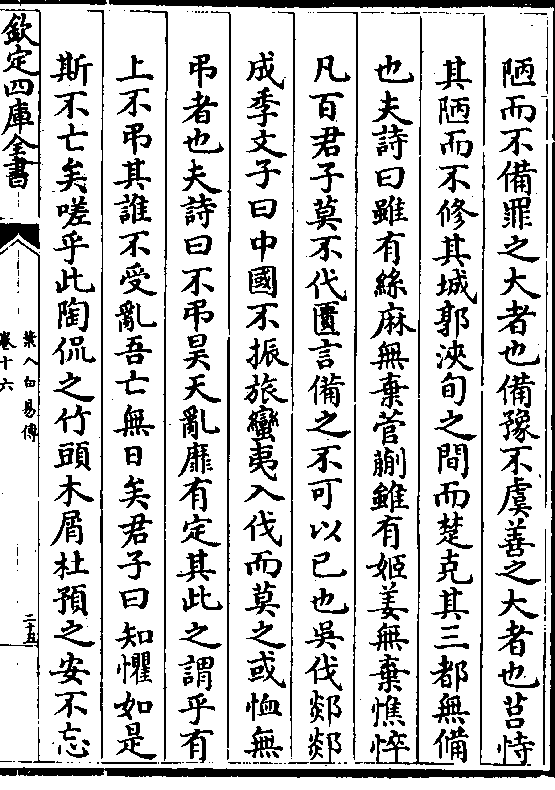 陋而不備罪之大者也備豫不虞善之大者也莒恃
其陋而不修其城郭浹旬之間而楚克其三都無備
也夫詩曰雖有絲麻無棄菅蒯雖有姬姜無棄憔悴
凡百君子莫不代匱言備之不可以已也吳伐郯郯
成季文子曰中國不振旅蠻夷入伐而莫之或恤無
弔者也夫詩曰不弔昊天亂靡有定其此之謂乎有
上不弔其誰不受亂吾亡無日矣君子曰知懼如是
斯不亡矣嗟乎此陶侃之竹頭木屑杜預之安不忘
欽定四庫全書
葉八白易傳
卷十六
二十五